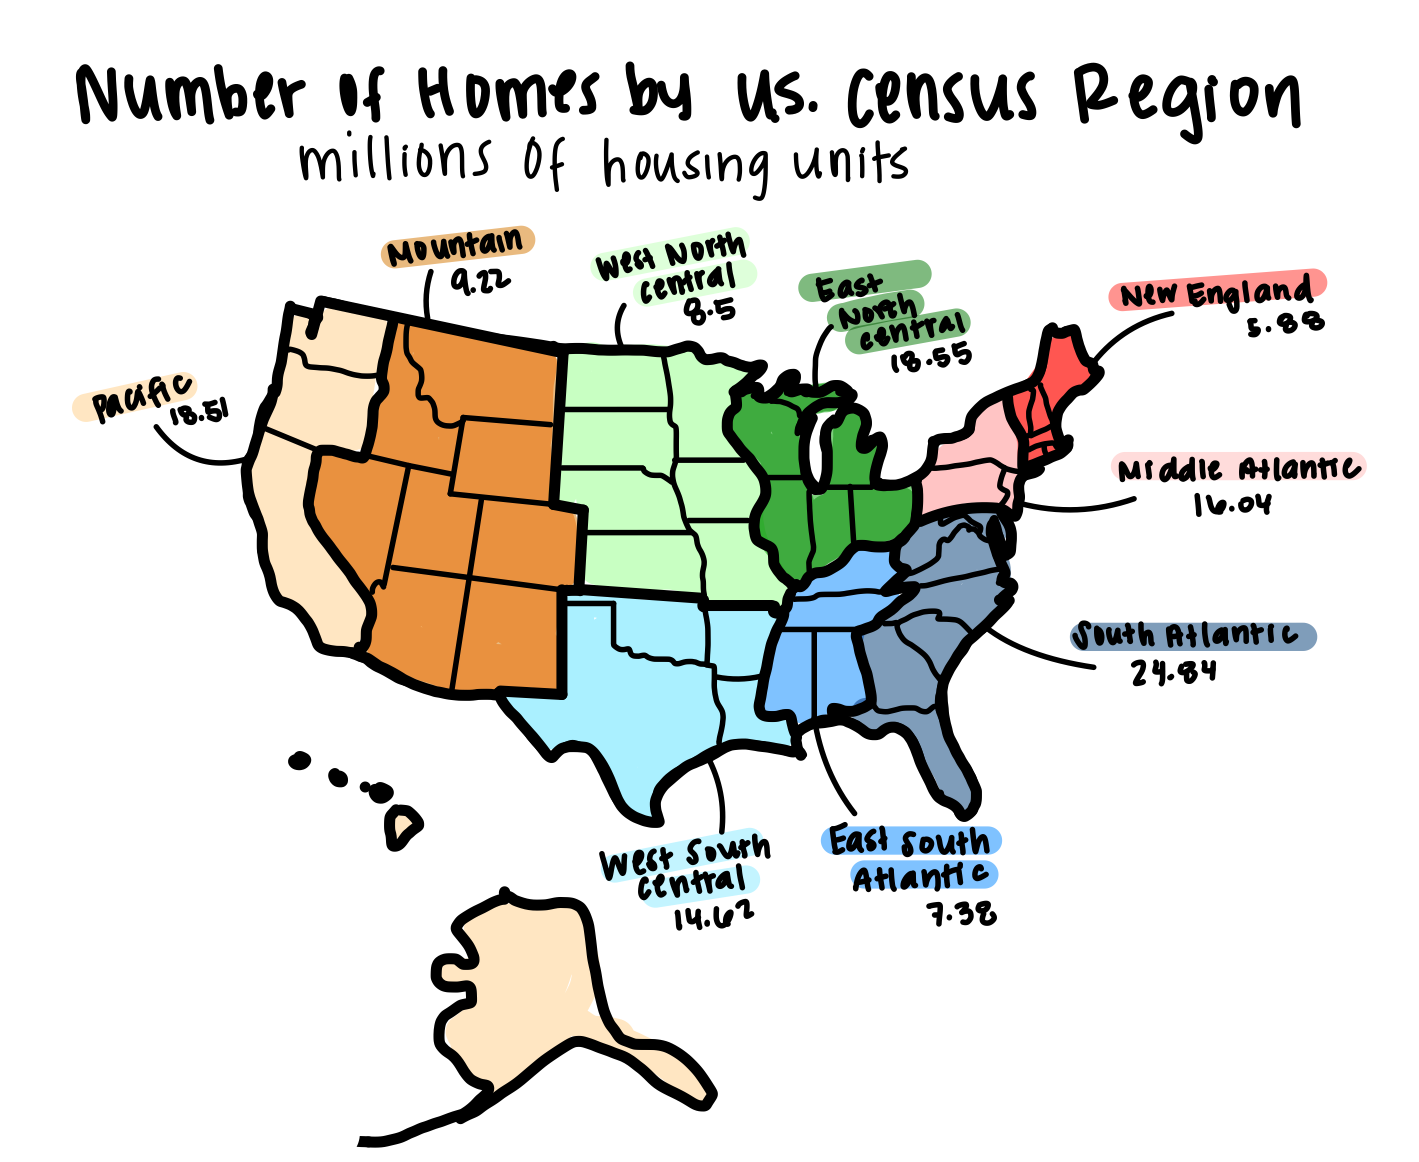 Number of Homes by U.S. Census Region
millions of housing units
Mountain
9.22
West North
central
8.5
East
North
central
18.55
New England
5.88
Pacific
18.51
Middle Atlantic
16.04
South Atlantic
24.84
West South
central
14.62
East South
Atlantic
7.38